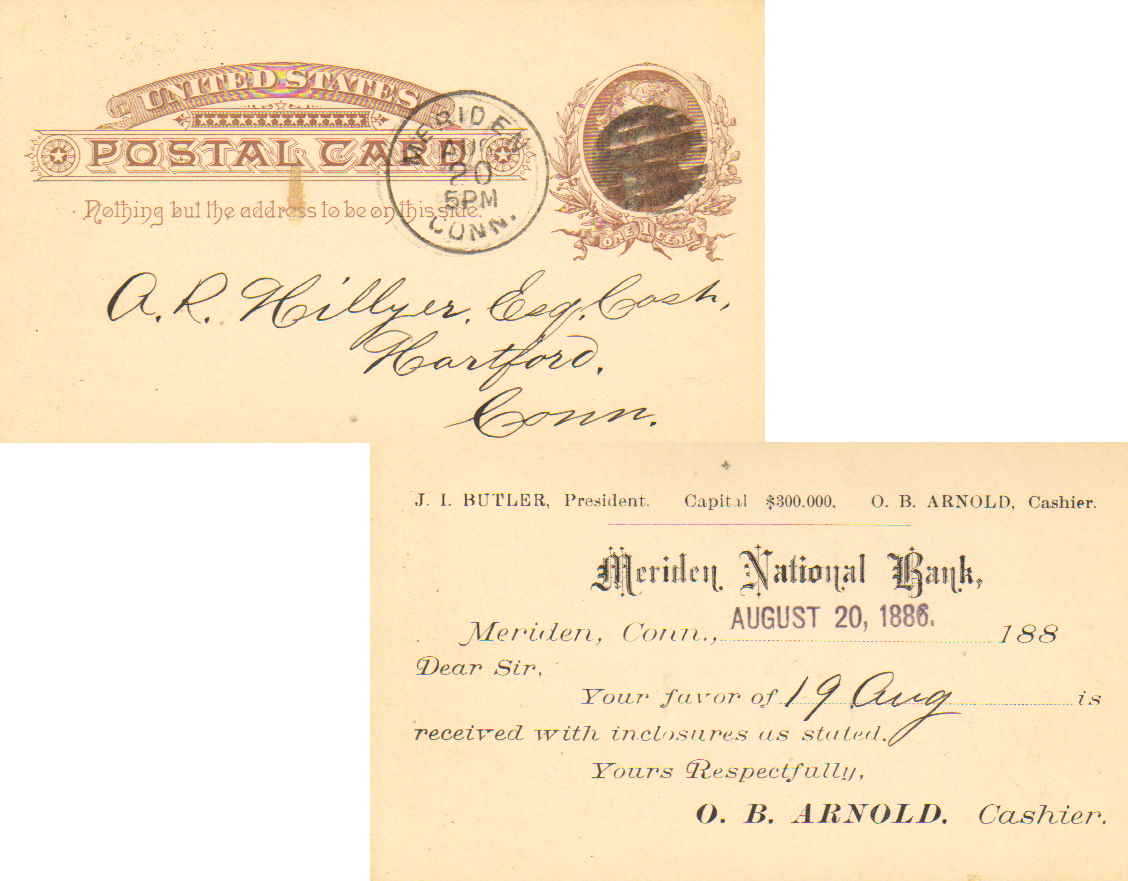 UNITED STATES
POSTAL CARD
Nothing but the address to be on this side.
MERIDEN
AUG
20
5PM
CONN.
ONE 1 CENT
A. R. Hillyer, Esq. Cash,
Hartford,
Conn.
J. I. BUTLER, President. Capital $300.000. O. B. ARNOLD, Cashier.
Meriden National Bank,
Meriden, Conn., AUGUST 20, 1886. 188
Dear Sir,
Your favor of 19 Aug is
received with inclosures as stated.
Yours Respectfully,
O. B. ARNOLD. Cashier.